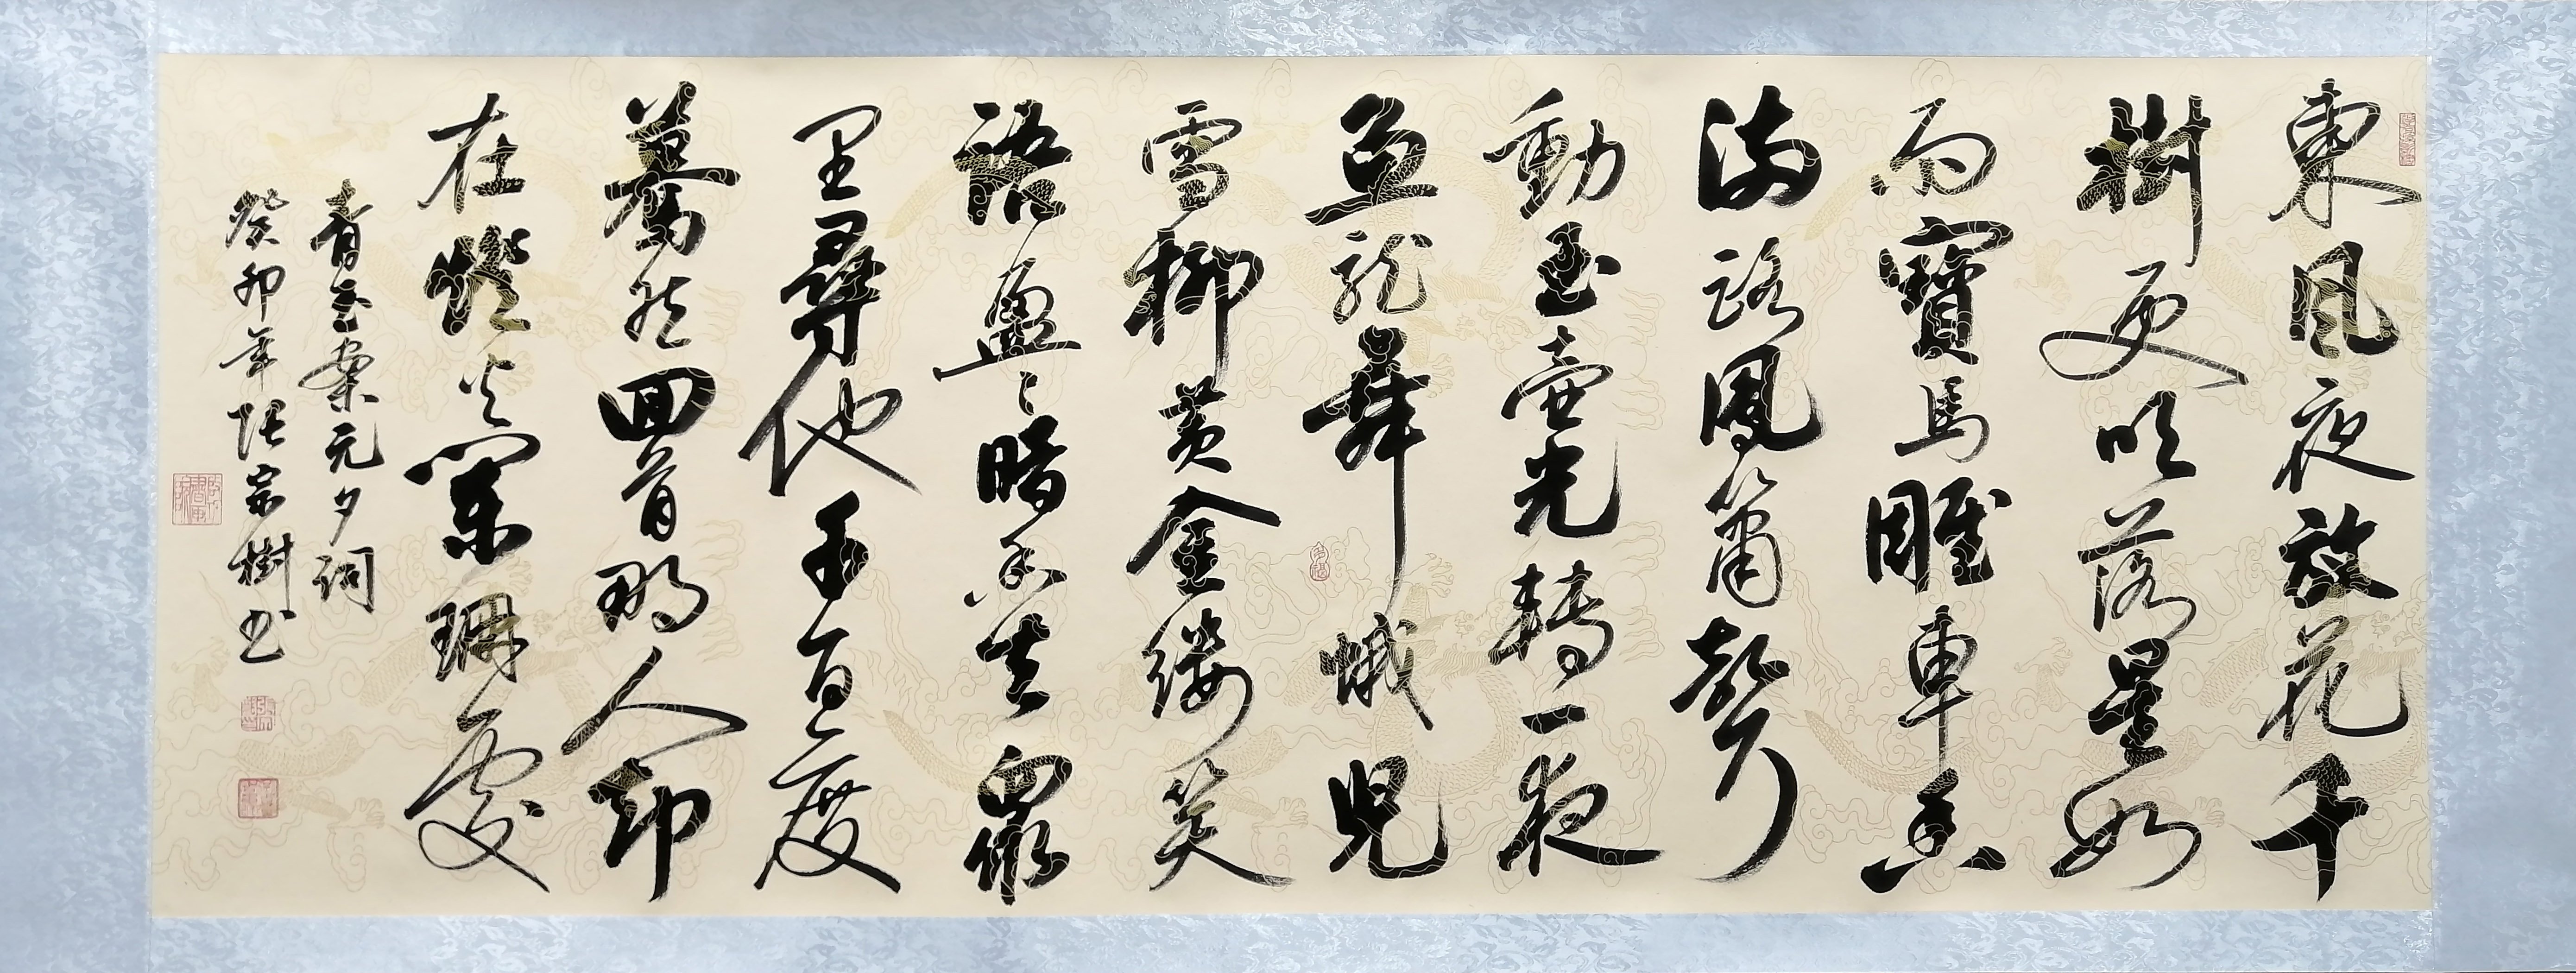 東風夜放花千
樹更吹落星如
雨寶馬雕車香
滿路鳳簫聲
動玉壺光轉一夜
魚龍舞蛾兒
雪柳黃金縷笑
語盈〻暗香去眾
里尋他千百度
驀然回首那人卻
在燈火闌珊處
青玉案元夕詞
癸卯年張宗樹书